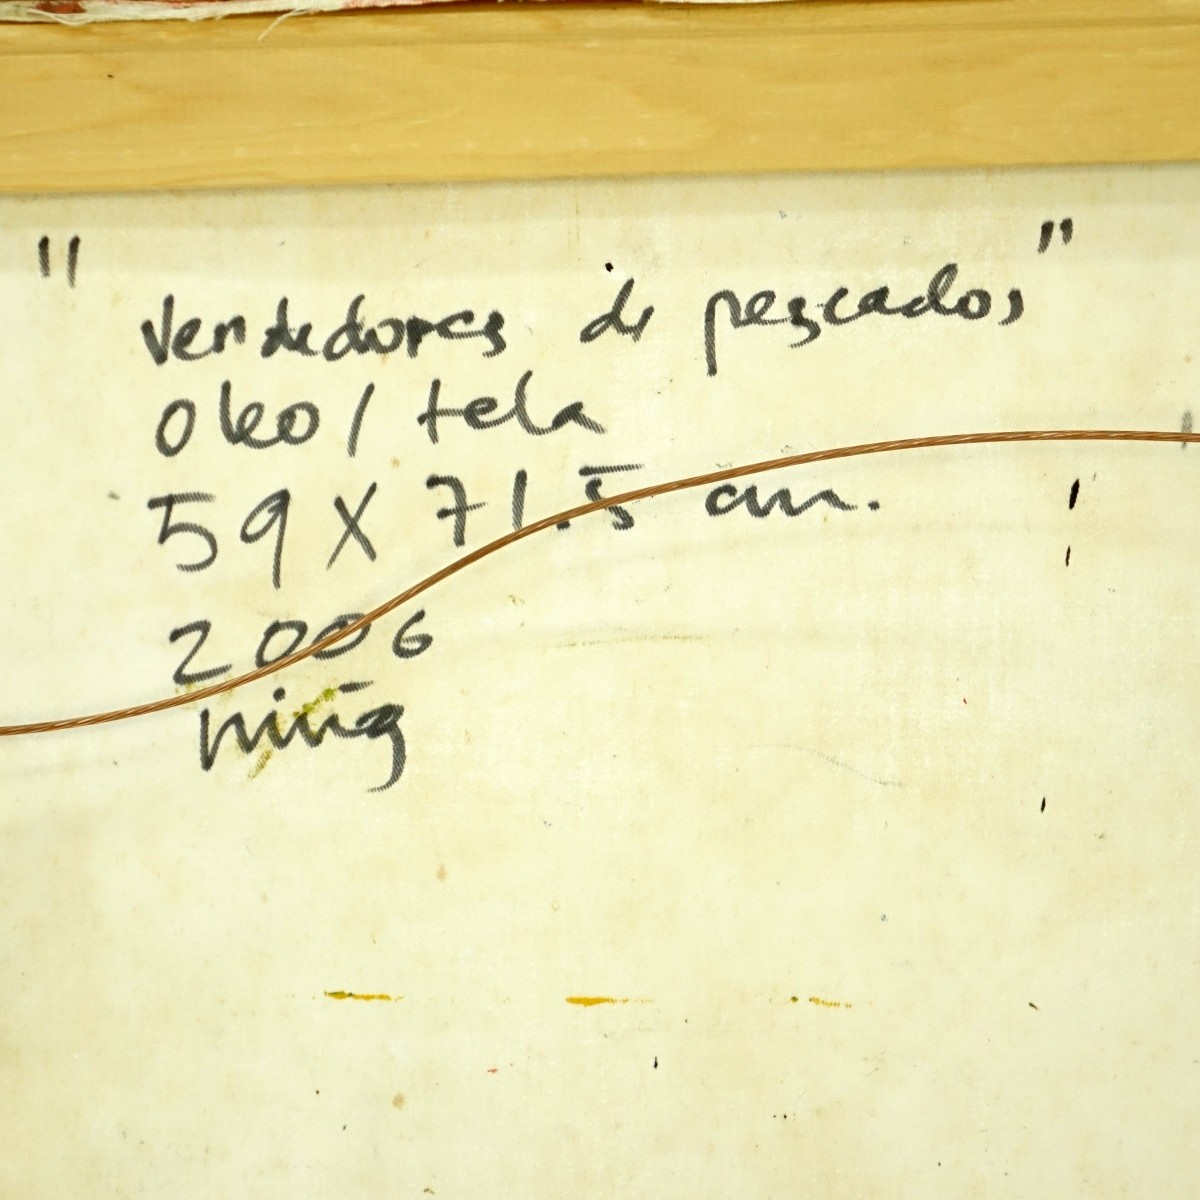 "Vendedores de pescados"
oleo / tela
59 X 71.5 cm.
2006